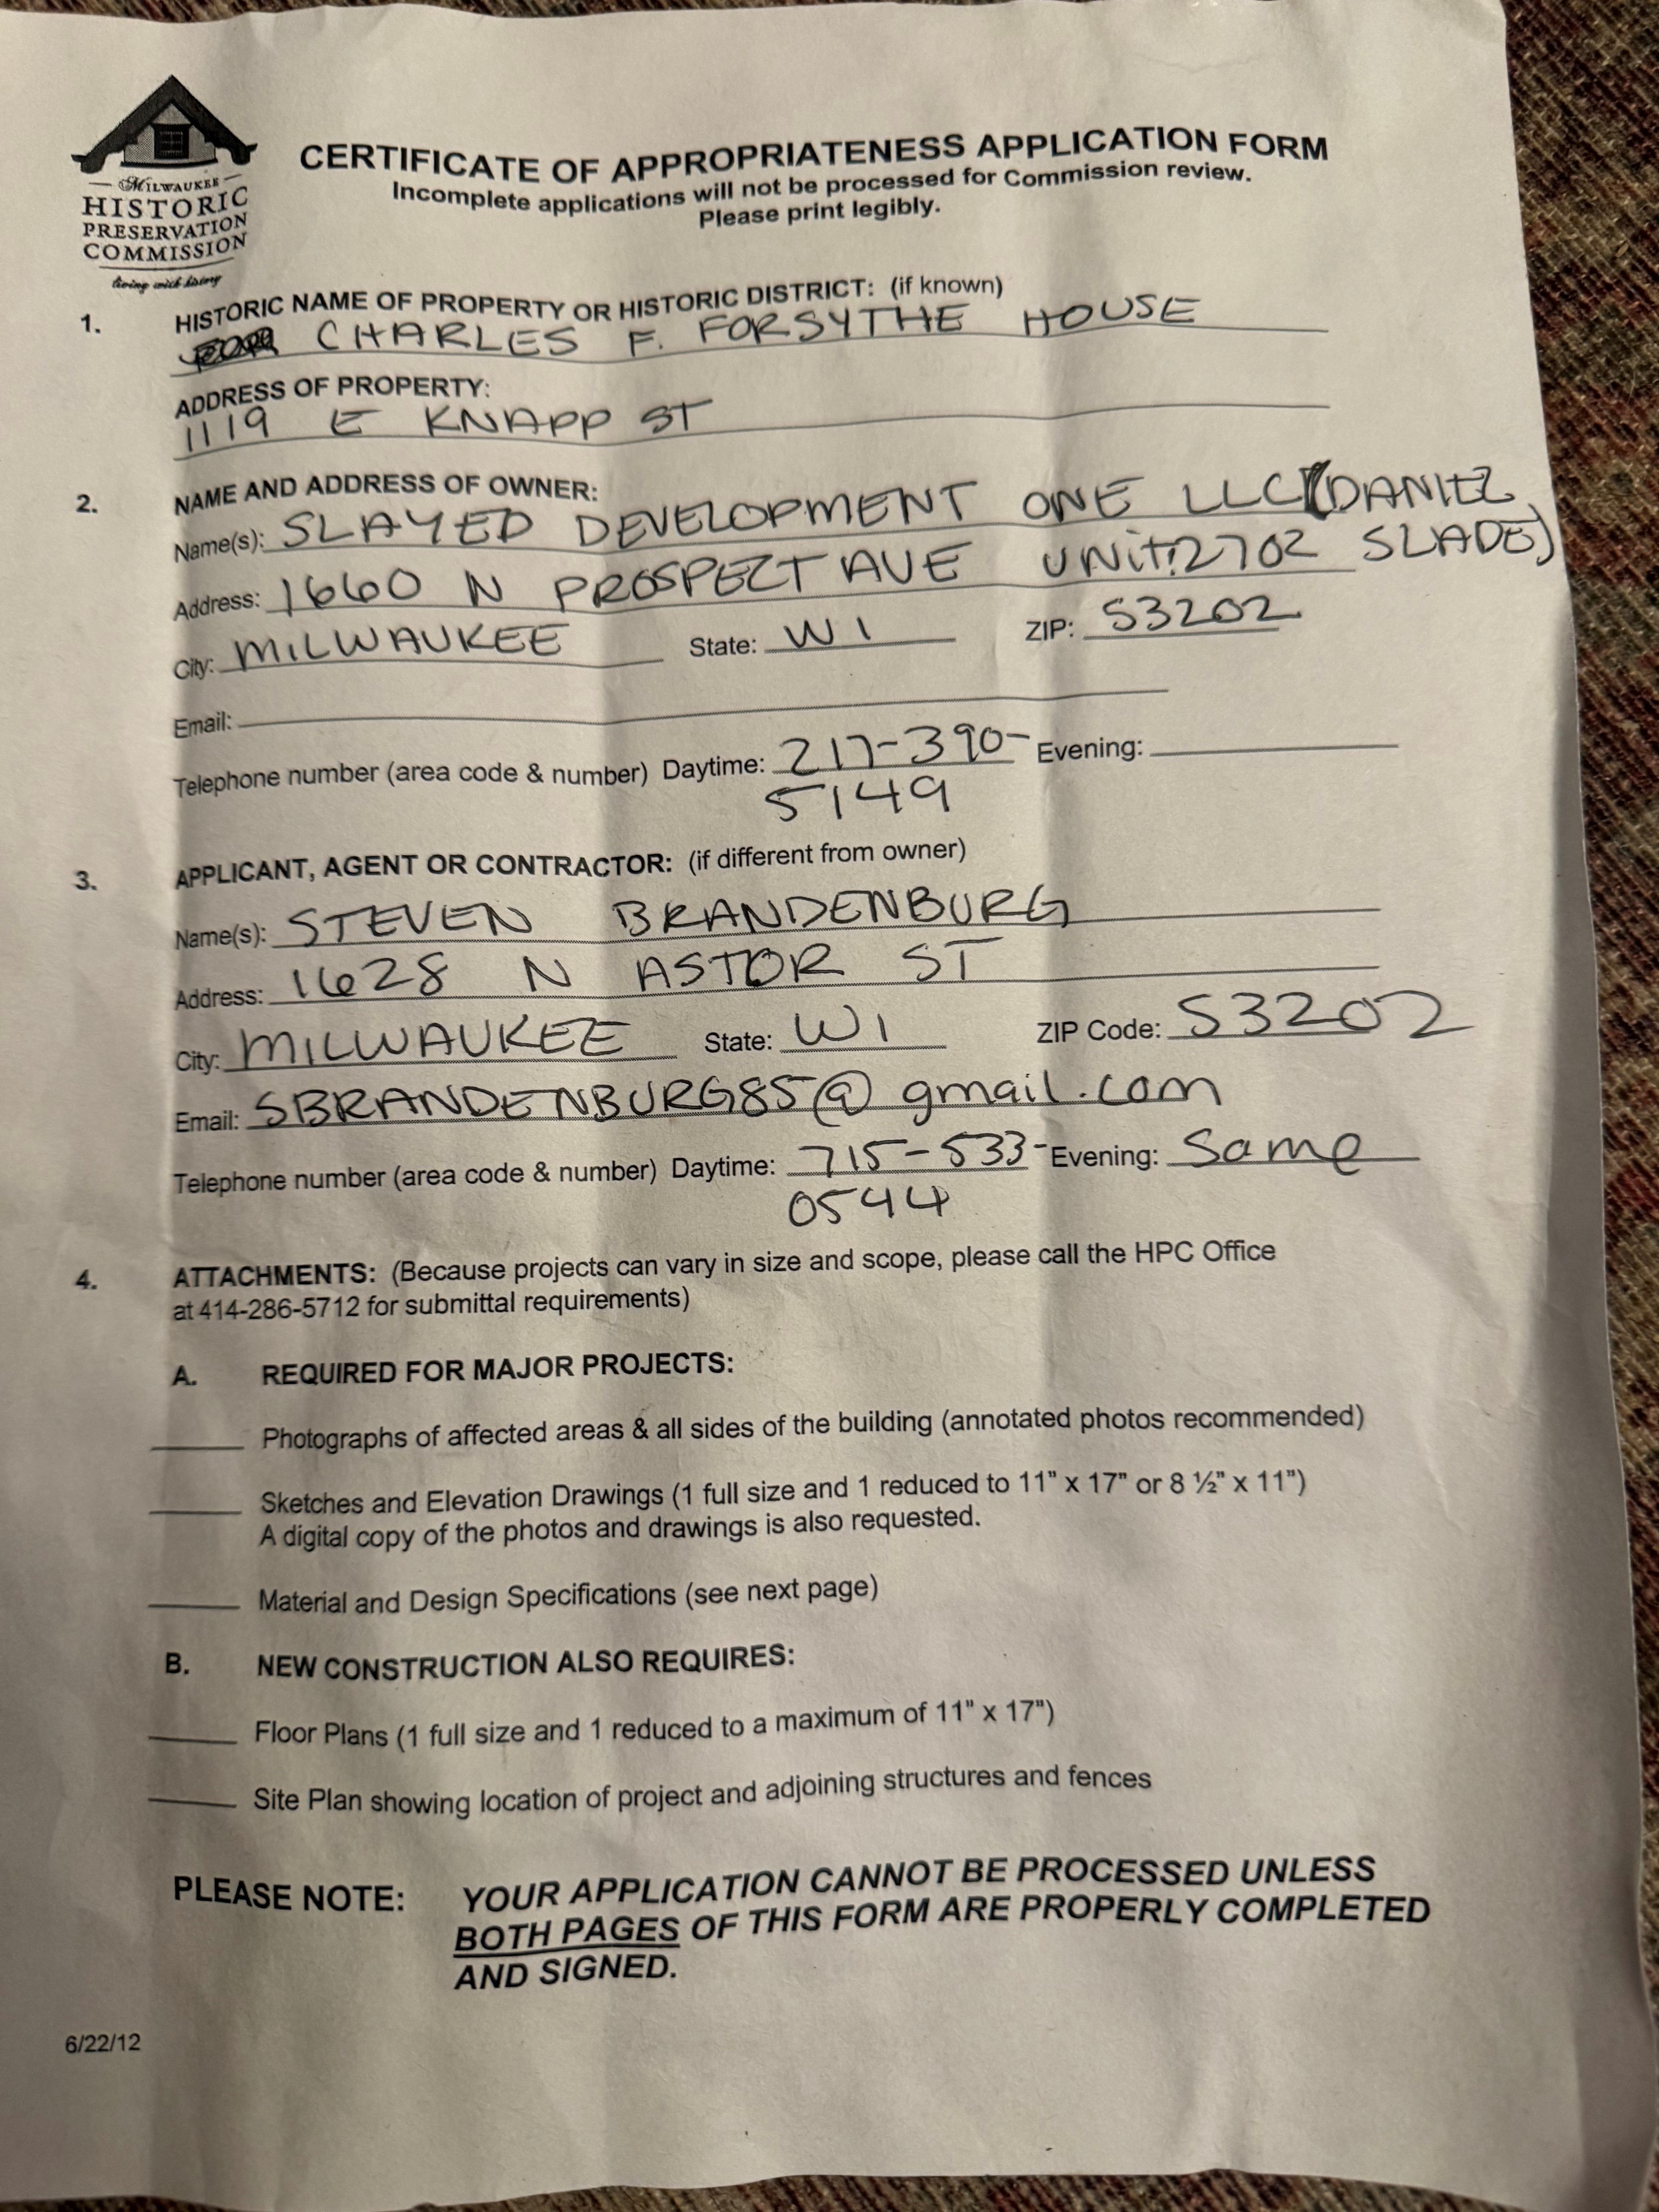 MILWAUKEE
HISTORIC
PRESERVATION
COMMISSION
living with history
CERTIFICATE OF APPROPRIATENESS APPLICATION FORM
Incomplete applications will not be processed for Commission review.
Please print legibly.
1. HISTORIC NAME OF PROPERTY OR HISTORIC DISTRICT: (if known)
CHARLES F. FORSYTHE HOUSE
ADDRESS OF PROPERTY:
1119 E KNAPP ST
2. NAME AND ADDRESS OF OWNER:
Name(s): SLAYED DEVELOPMENT ONE LLC (DANIEL
SLADE)
Address: 1660 N PROSPECT AVE UNIT: 2702
City: MILWAUKEE State: WI ZIP: 53202
Email:
Telephone number (area code & number) Daytime: 217-390- Evening:
5149
3. APPLICANT, AGENT OR CONTRACTOR: (if different from owner)
Name(s): STEVEN BRANDENBURG
Address: 1628 N ASTOR ST
City: MILWAUKEE State: WI ZIP Code: 53202
Email: SBRANDENBURG85@gmail.com
Telephone number (area code & number) Daytime: 715-533- Evening: Same
0544
4. ATTACHMENTS: (Because projects can vary in size and scope, please call the HPC Office
at 414-286-5712 for submittal requirements)
A. REQUIRED FOR MAJOR PROJECTS:
Photographs of affected areas & all sides of the building (annotated photos recommended)
Sketches and Elevation Drawings (1 full size and 1 reduced to 11" x 17" or 8 ½" x 11")
A digital copy of the photos and drawings is also requested.
Material and Design Specifications (see next page)
B. NEW CONSTRUCTION ALSO REQUIRES:
Floor Plans (1 full size and 1 reduced to a maximum of 11" x 17")
Site Plan showing location of project and adjoining structures and fences
PLEASE NOTE: YOUR APPLICATION CANNOT BE PROCESSED UNLESS
BOTH PAGES OF THIS FORM ARE PROPERLY COMPLETED
AND SIGNED.
6/22/12